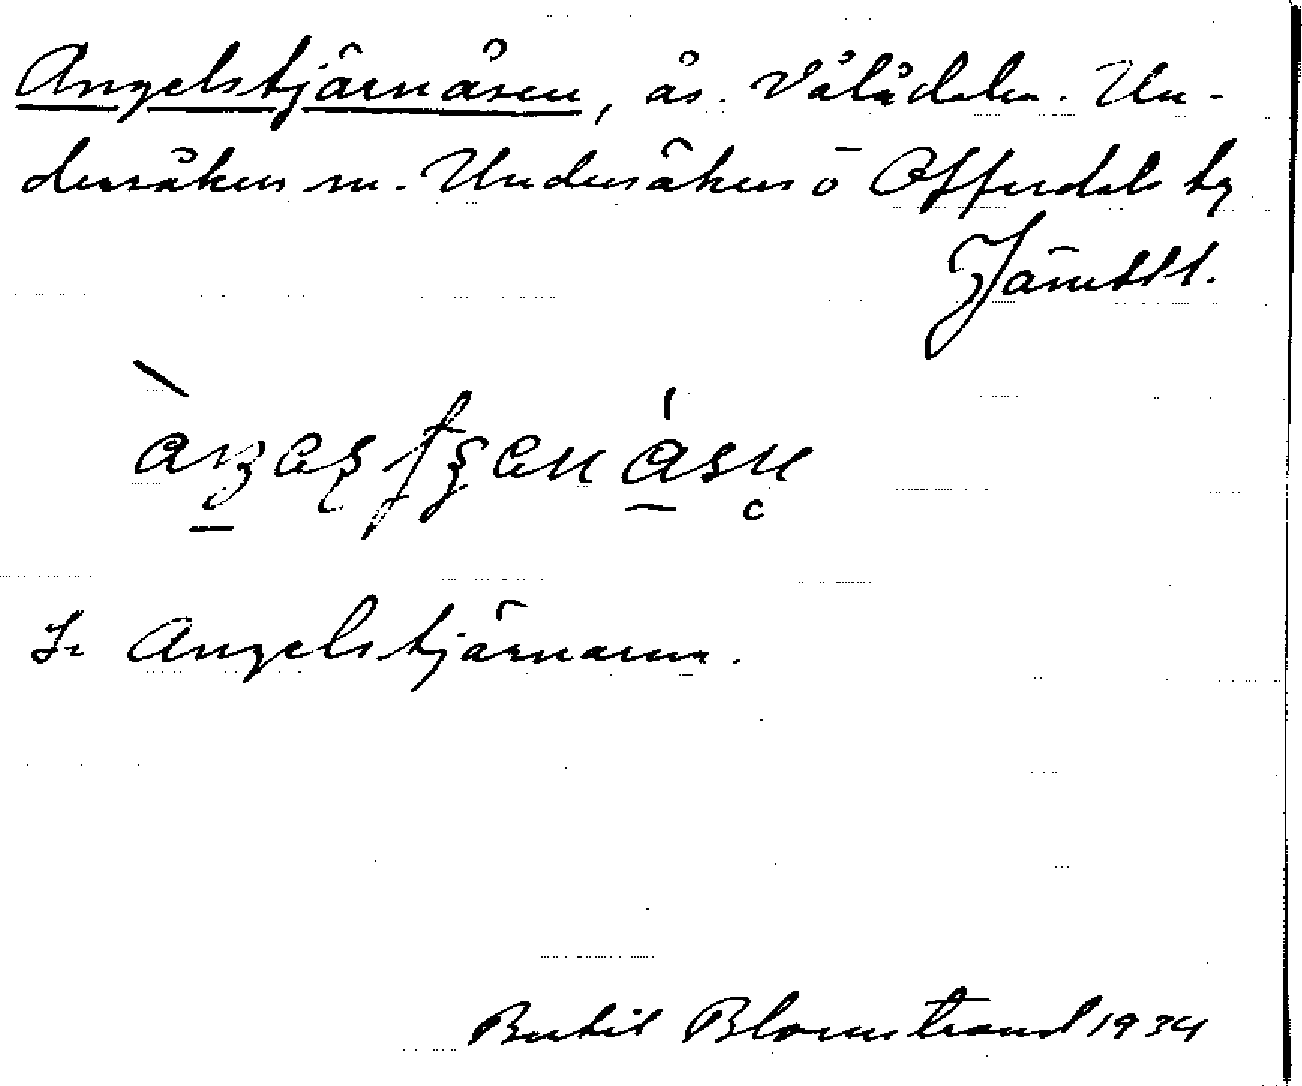 Angelstjärnåsen, ås. Vålådalen. Un-
dersåkers sn. Undersåkers o Offerdals tg
Jämtl.
Se Angelstjärnarna.
Bertil Blomstrand 1934